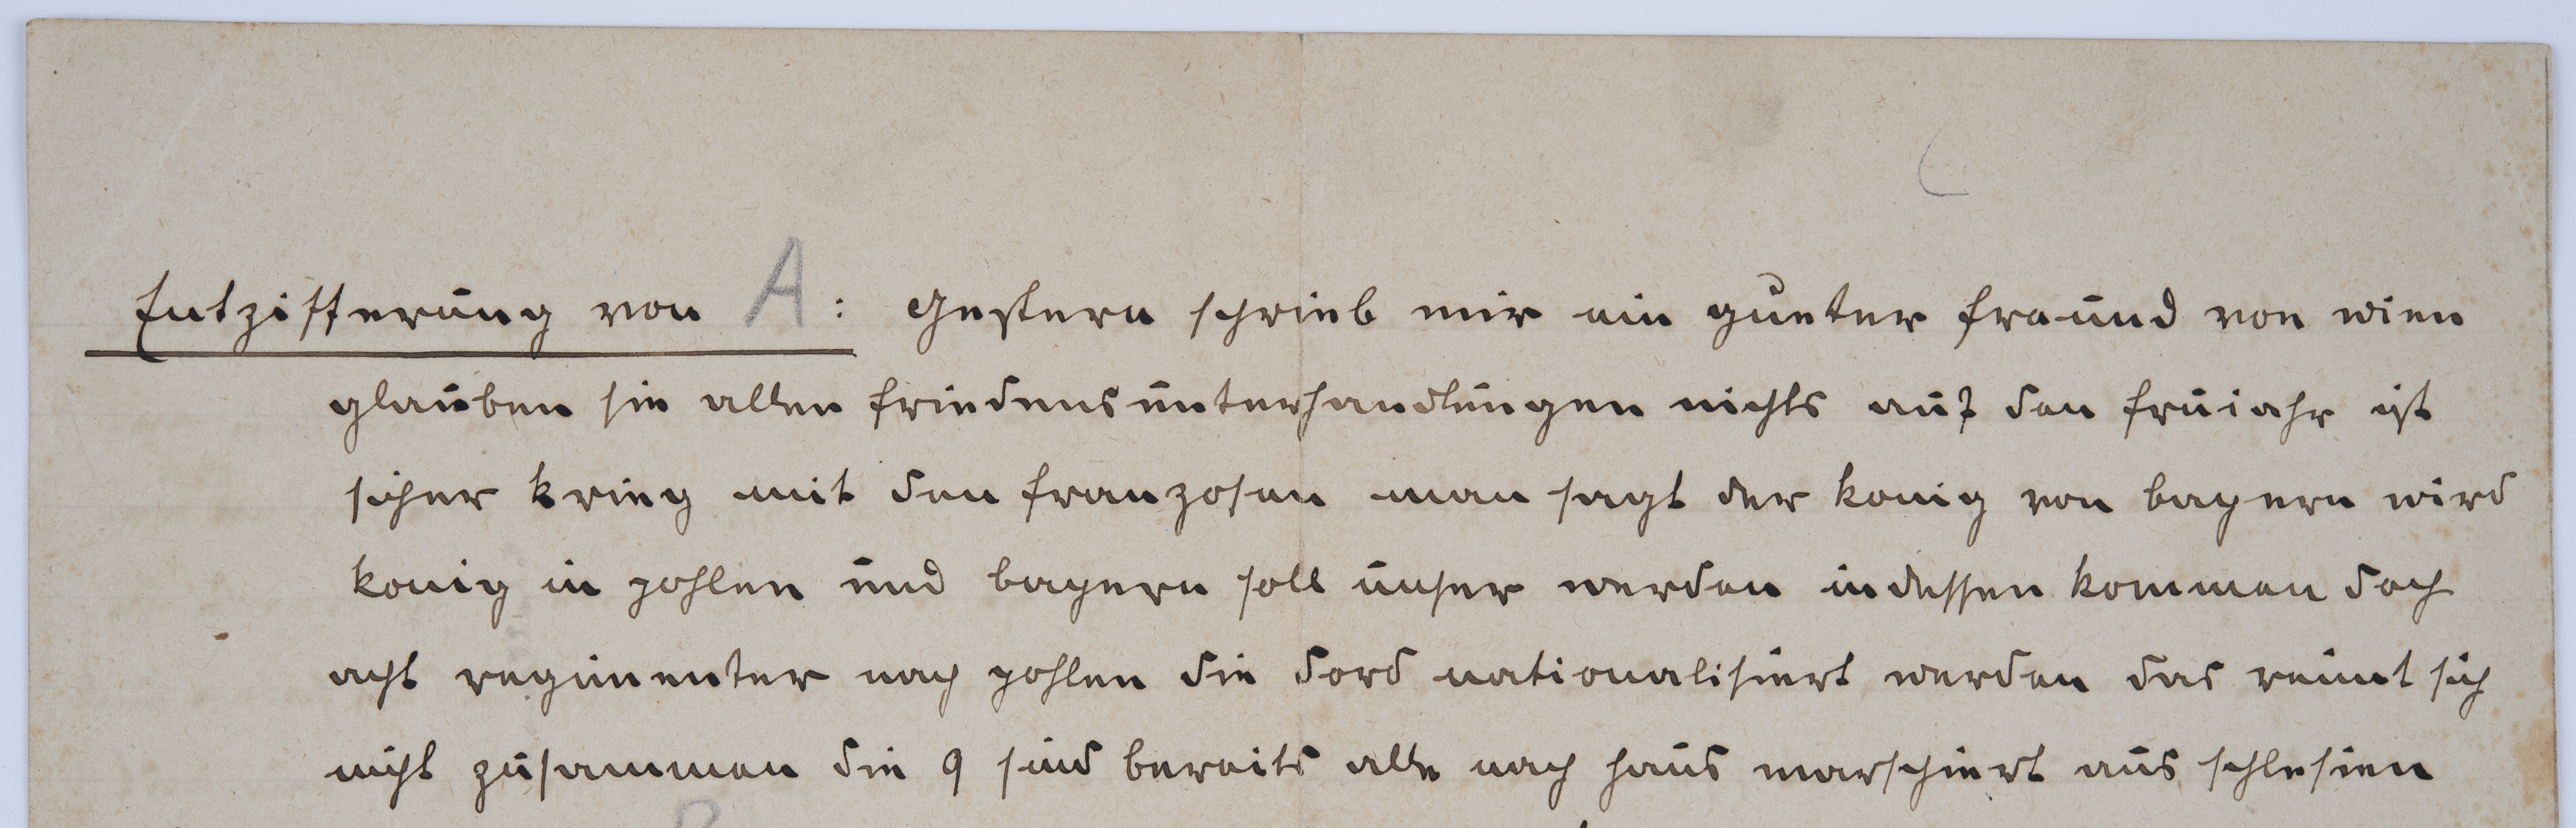 Entzifferung von A: Gestern schrieb mir ein gueter fraeund von wien
glauben sie allen friedensunterhandlungen nichts auf den fruiahr ist
sicher krieg mit den franzosen man sagt der konig von bayern wird
konig in pohlen und bayern soll unser werden indessen kommen doch
acht regimenter nach pohlen die dord nationalisiert werden das reimt sich
nicht zusammen die 9 sind bereits alle nach haus marschiert aus schlesien